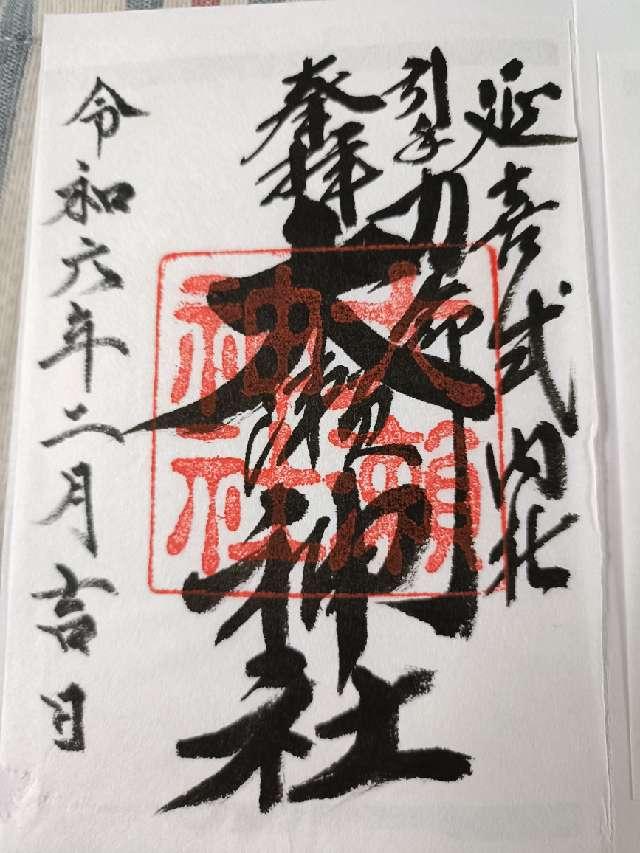 延喜式内社
引手力命
奉拝
大瀬神社
大瀬
神社
令和六年二月吉日